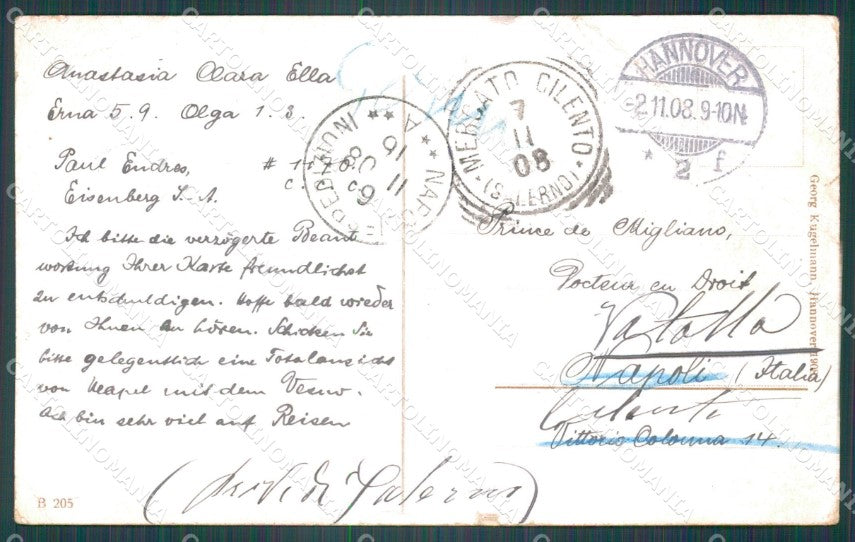 Anastasia Clara Ella
Erna 5.9. Olga 1.3.
Paul Endres,
Eisenberg S.-A.
Ich bitte die verzögerte Beant
wortung Ihrer Karte freundlichst
zu entschuldigen. Hoffe bald wieder
von Ihnen zu hören. Schicken Sie
bitte gelegentlich eine Totalansicht
von Neapel mit dem Vesuv.
Ich bin sehr viel auf Reisen
B 205
MERCATO CILENTO
7
11
08
(SALERNO)
HANNOVER
-2.11.08. 9-10N
* 2 f
Prince de Migliano,
Docteur en Droit
Vatolla
Napoli (Italia)
Cilento
Vittoria Colonna 14.
Salerno)
Georg Kugelmann, Hannover
CARTOLINOMANIA